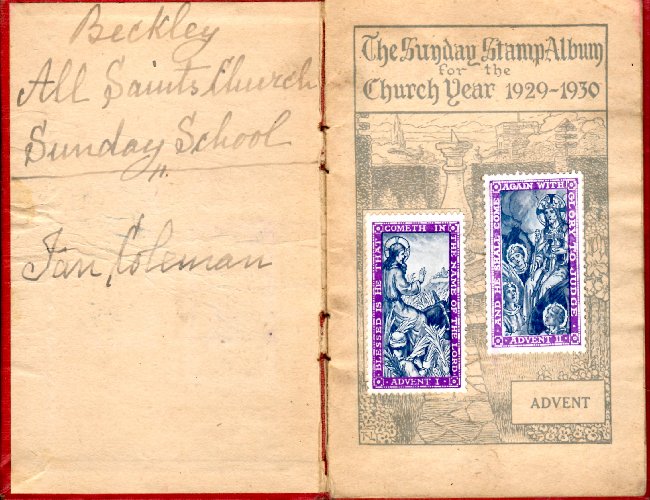 Beckley
All Saints Church
Sunday School
Coleman
The Sunday Stamp Album
for the
Church Year 1929-1930
BLESSED IS HE THAT
COMETH IN
THE NAME OF THE LORD
ADVENT I
AND HE SHALL COME
AGAIN WITH
GLORY TO JUDGE
ADVENT II
ADVENT